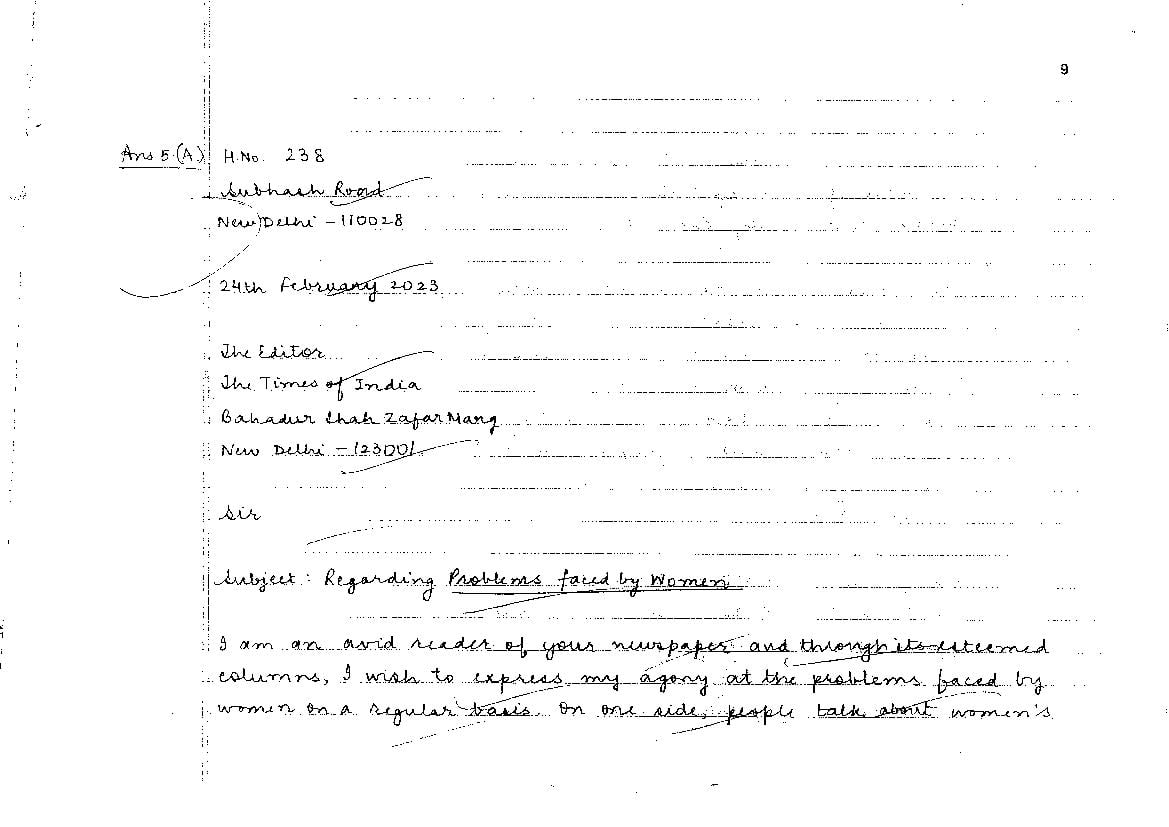 9
Ans 5.(A) H.No. 238
Subhash Road
New Delhi - 110028
24th February 2023
The Editor
The Times of India
Bahadur Shah Zafar Marg
New Delhi - 123001
Sir
Subject : Regarding Problems faced by Women
I am an avid reader of your newspaper and through its esteemed
columns, I wish to express my agony at the problems faced by
women on a regular basis. On one side, people talk about women's